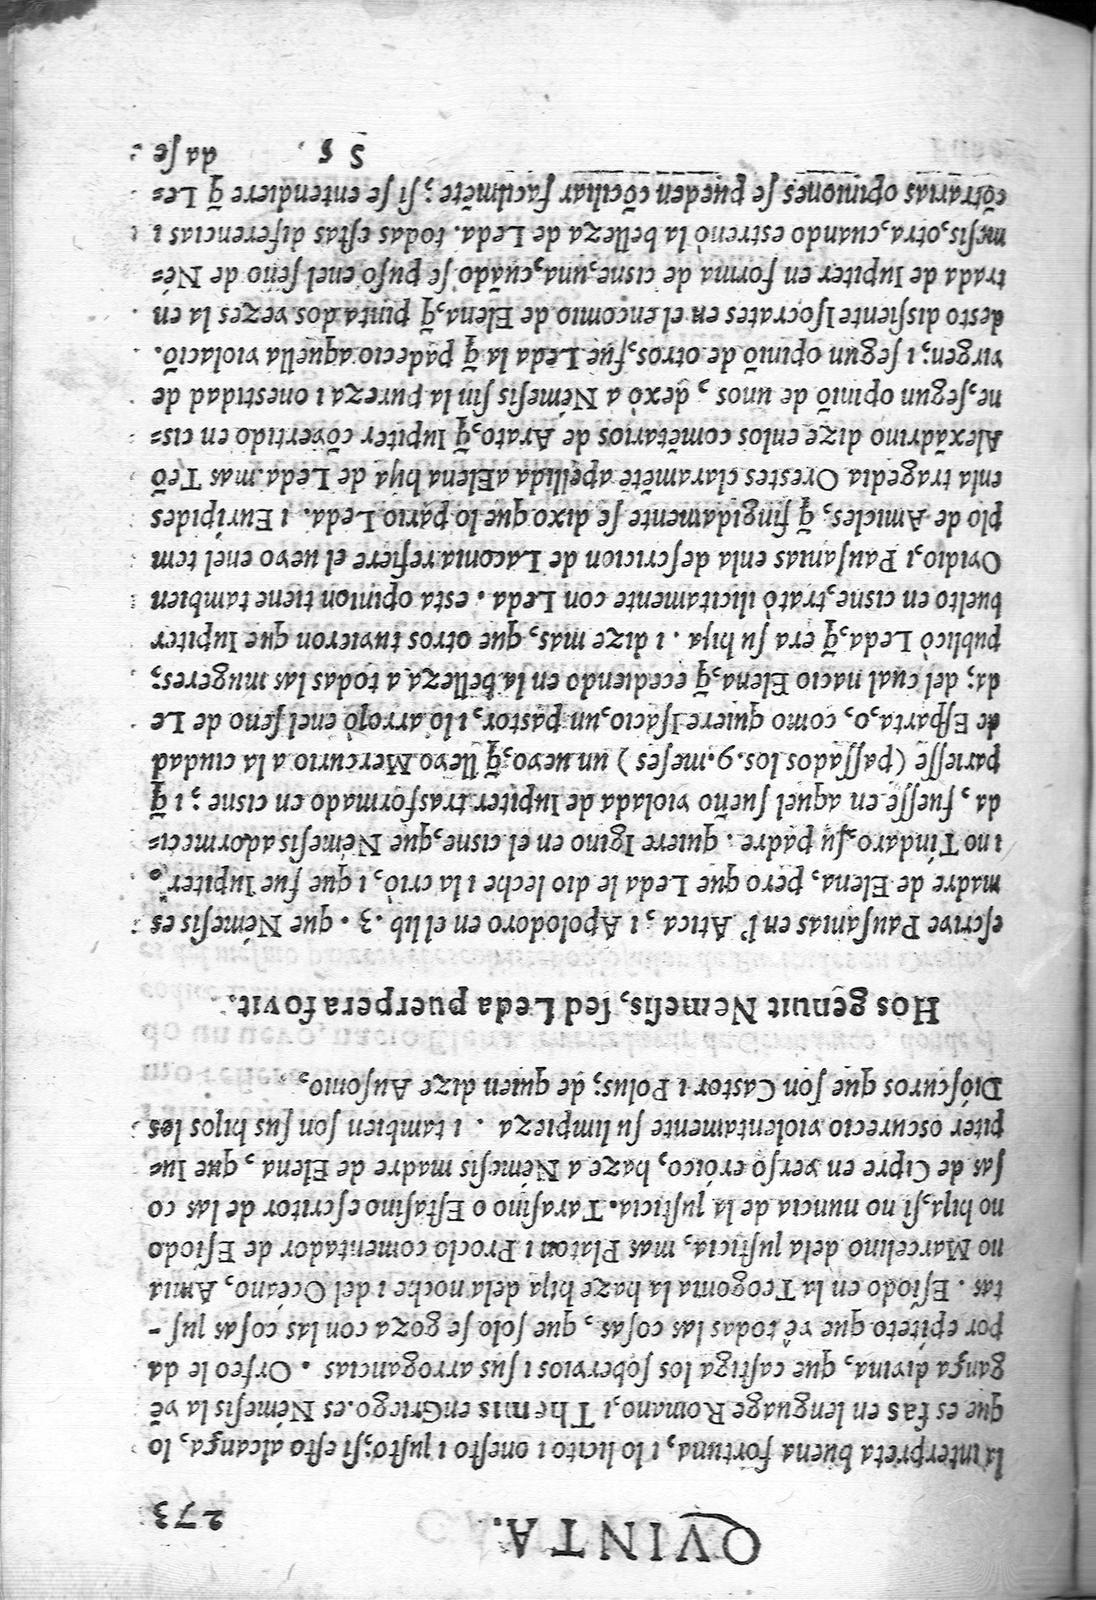 QVINTA. 273
la interpreta buena fortuna, i lo licito i onesto i justo; si esto alcança, lo
que es fas en lenguage Romano, i Themis en Griego. es Némesis la vē
gança divina, que castiga los sobervios i sus arrogancias . Orfeo le da
por epíteto que vê todas las cosas , que solo se goza con las cosas jus-
tas . Esiodo en la Teogonia la haze hija dela noche i del Océano, Amia
no Marcelino dela justicia, mas Platon i Proclo comentador de Esiodo
no hija, si no nuncia de la justicia. Tarasino o Estasino escritor de las co
sas de Cipre en verso eróico, haze a Némesis madre de Elena , que Iu=
piter oscurecio violentamente su limpieza . i tambien son sus hijos los
Dióscuros que son Castor i Polus; de quien dize Ausonio,
Hos genuit Nemesis, sed Leda puerpera fovit.
escrive Pausanias en l' Atica ; i Apolodoro en el lib. 3 . que Némesis es
madre de Elena, pero que Leda le dio leche i la criò, i que fue Iupiter
i no Tíndaro, su padre . quiere Igino en el cisne, que Némesis adormeci=
da , fuesse en aquel sueño violada de Iupiter trasformado en cisne ; i q̃
pariesse ( passados los. 9. meses ) un uevo, q̃ llevo Mercurio a la ciudad
de Esparta, o, como quiere Isacio, un pastor, i lo arrojò enel seno de Le
da; del cual nacio Elena, q̃ ecediendo en la belleza a todas las mugeres;
publicò Leda, q̃ era su hija . i dize mas, que otros tuvieron que Iupiter
buelto en cisne, tratò ilicitamente con Leda . esta opinion tiene tambien
Ovidio, i Pausanias enla descricion de Laconia refiere el uevo enel tem
plo de Amicles, q̃ fingidamente se dixo que lo pario Leda. i Eurípides
enla tragedia Orestes claramẽte apellida a Elena hija de Leda. mas Teō
Alexãdrino dize enlos cometarios de Arato, q̃ Iupiter cõvertido en cis=
ne, segun opiniõ de unos , dexò a Némesis sin la pureza i onestidad de
virgen; i segun opiniõ de otros, fue Leda la q̃ padecio aquella violaciõ.
desto disiente Isocrates en el encomio de Elena, q̃ pinta dos vezes la en
trada de Iupiter en forma de cisne, una, cuãdo se puso enel seno de Né=
mesis, otra, cuando estrenò la belleza de Leda. todas estas diferencias i
cõtrarias opiniones se pueden cõciliar facilmẽte ; si se entendiere q̃ Le=
S 5 da se